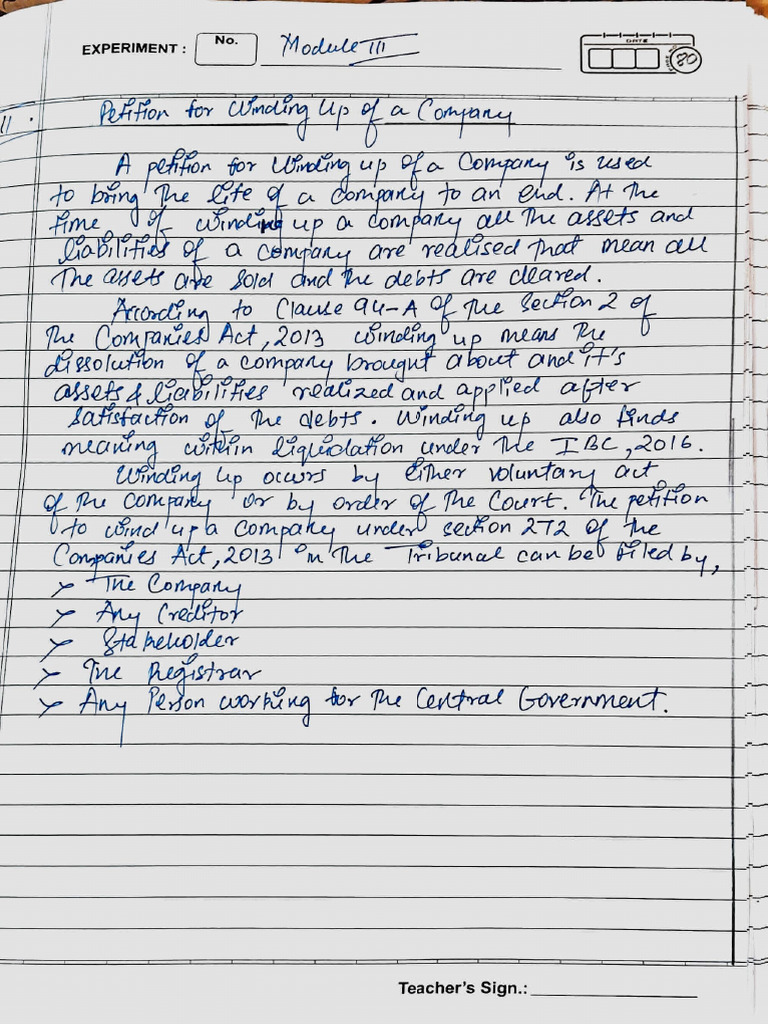 EXPERIMENT : No. Module III
DATE
80
11. Petition for Winding Up of a Company
A petition for Winding up of a Company is used
to bring the life of a company to an end. At the
time of winding up a company all the assets and
liabilities of a company are realised that mean all
the assets are sold and the debts are cleared.
According to Clause 94-A of the Section 2 of
the Companies Act, 2013 winding up means the
dissolution of a company brought about and it's
assets & liabilities realized and applied after
satisfaction of the debts. Winding up also finds
meaning within liquidation under the IBC, 2016.
Winding up occurs by either voluntary act
of the company or by order of the Court. The petition
to wind up a company under section 272 of the
Companies Act, 2013 in the Tribunal can be filed by,
> The Company
> Any Creditor
> Stakeholder
> The Registrar
> Any Person working for the Central Government.
Teacher's Sign.: